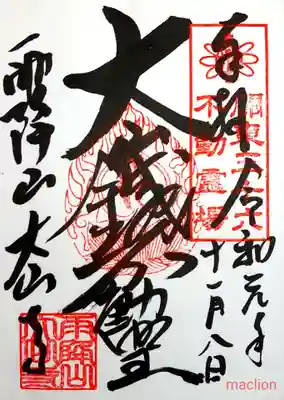 奉拝 令和元年
十一月八日
関東三十六
不動霊場
大鐵不動
雨降山 大山寺
雨降山
大山寺
maclion